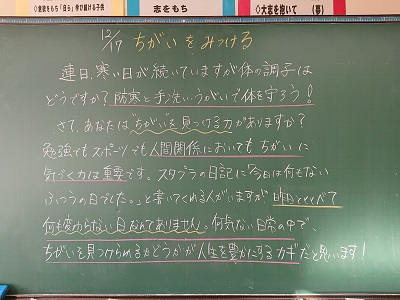 ◇意欲をもち「自ら」伸び続ける子供
志をもち
◇大志を抱いて (夢)
12/17 ちがいをみつける
連日、寒い日が続いていますが体の調子は
どうですか？防寒と手洗い、うがいで体を守ろう！
さて、あなたは"ちがい"を見つける力がありますか？
勉強でもスポーツでも人間関係においてもちがいに
気づく力は重要です。スタプラの日記に「今日は何もない
ふつうの日でした。」と書いてくれる人がいますが昨日とくらべて
何も変わらない日なんてありません。何気ない日常の中で、
ちがいを見つけられるかどうかが人生を豊かにするカギだと思います！